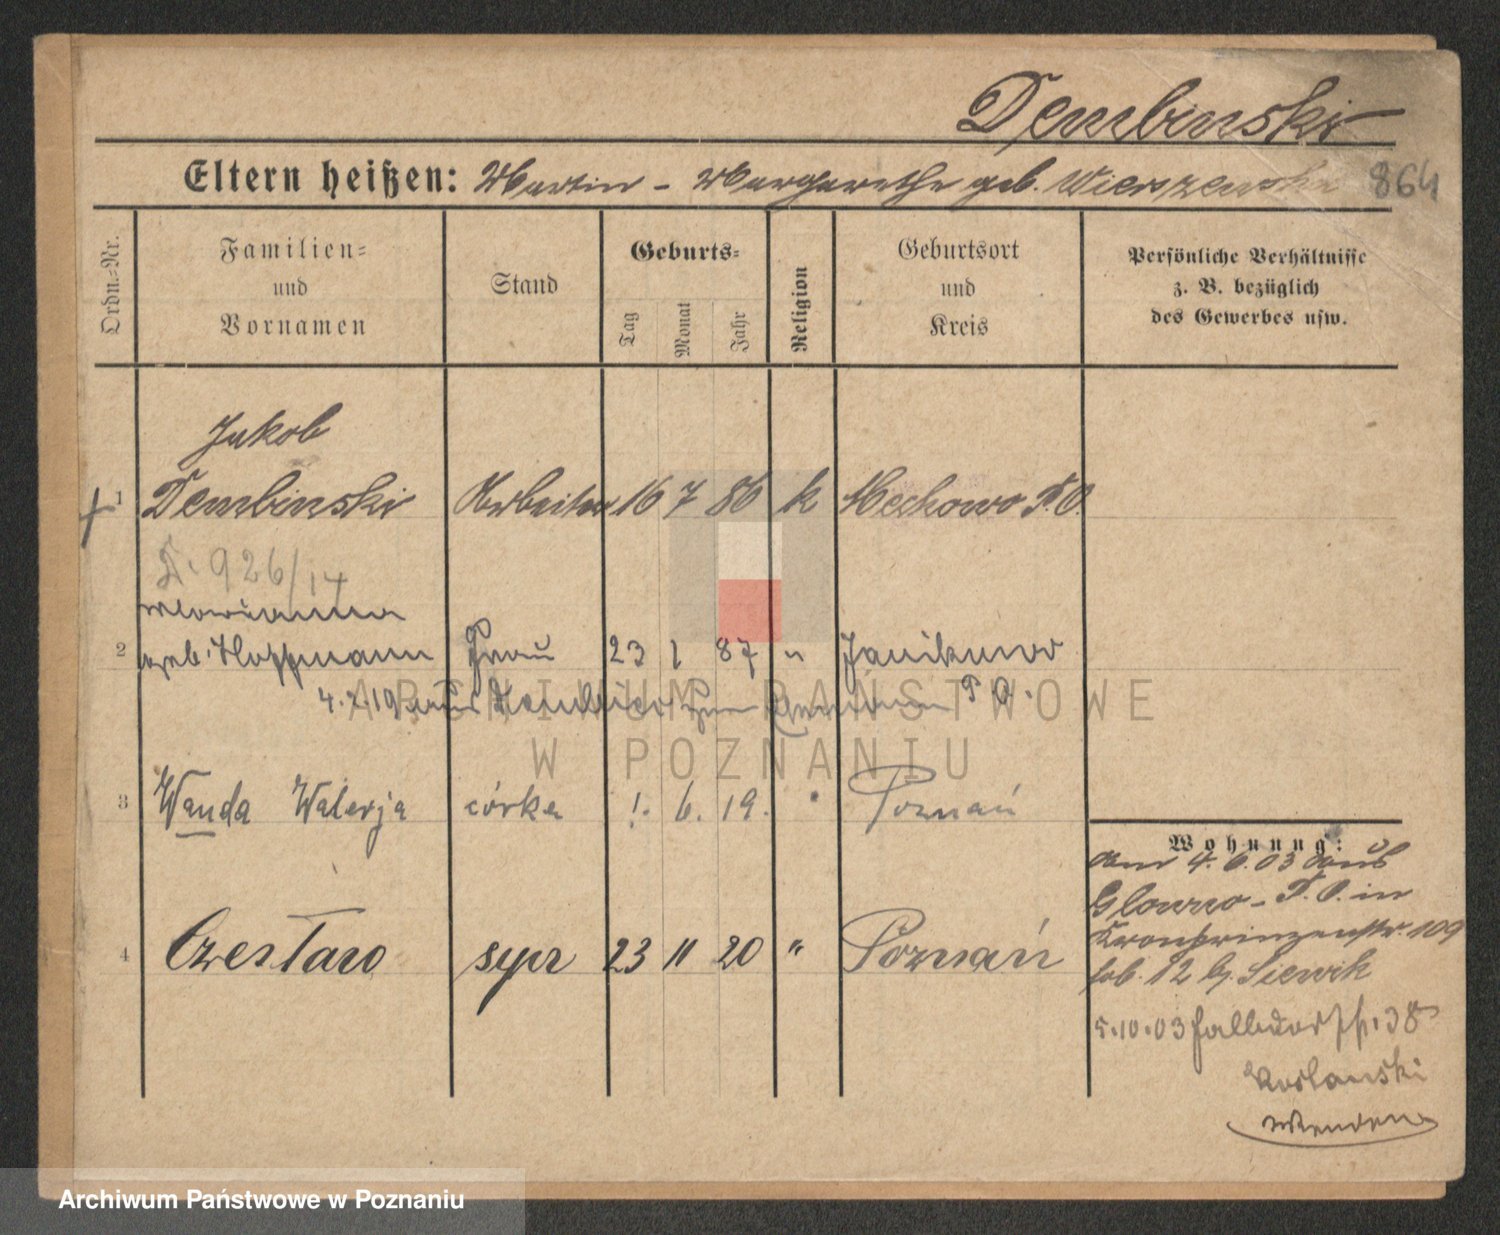 Dembinski
Eltern heißen: Martin - Margarethe geb. Wierszewska 864
Ordn.=Nr.
Familien=
und
Vornamen
Stand
Geburts=
Tag
Monat
Jahr
Religion
Geburtsort
und
Kreis
Persönliche Verhältnisse
z. B. bezüglich
des Gewerbes usw.
Jakob
1 Dembinski Arbeiter 16 7 86 k Mechowo P.O.
926/14
Marianna
2 geb. Hoffmann Frau 23 1 87 " Janikowo
4.2.19 aus P. O.
3 Wanda Walerja córka 1. 6. 19. " Poznań
4 Czesław syn 23 11 20 " Poznań
Wohnung:
Am 4. 6. 03 aus
Glowno - P. O. in
Kronprinzenstr. 109
b/. Siewik
5.10.03 38
Koslanski
Wenden
ARCHIWUM PAŃSTWOWE
W POZNANIU
Archiwum Państwowe w Poznaniu